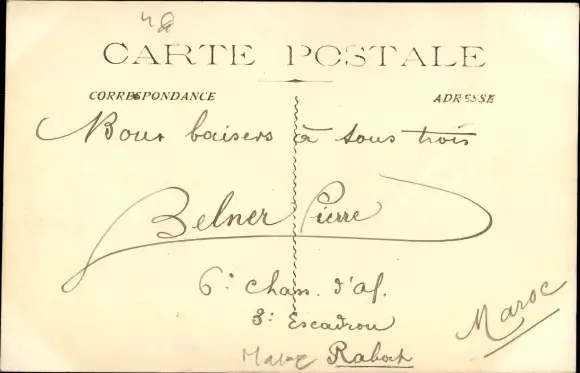 CARTE POSTALE
CORRESPONDANCE ADRESSE
Bour baisers à tous trois
Belner Pierre
6e Chass. d'Af.
3e Escadron
Maroc Raboch
Maroc